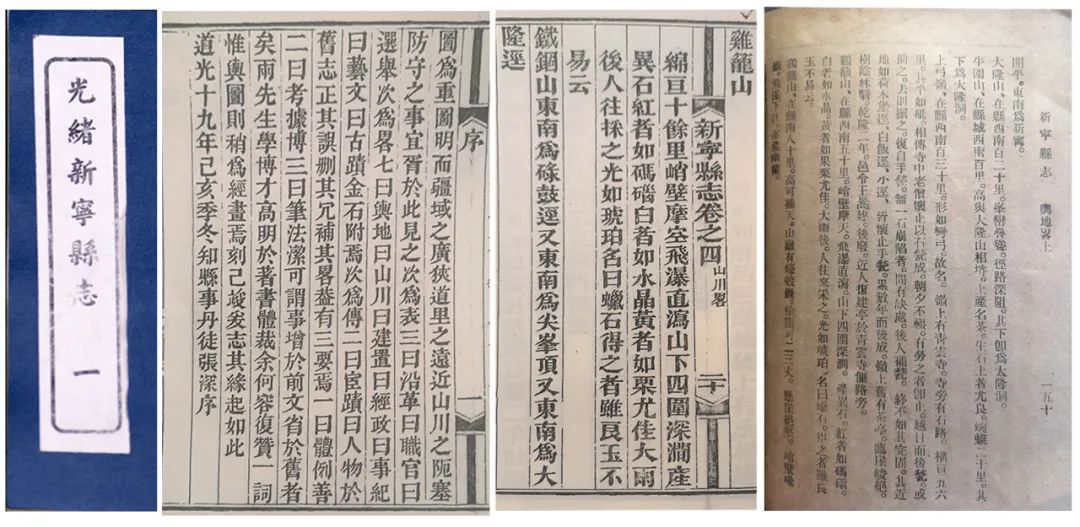 光緒新寧縣志 一
序 一
圖爲重圖明而疆域之廣狹道里之遠近山川之阨塞
防守之事宜胥於此見之次爲表三曰沿革曰職官曰
選舉次爲畧七曰輿地曰山川曰建置曰經政曰事紀
曰藝文曰古蹟金石附焉次爲傳二曰宦蹟曰人物於
舊志正其誤刪其冗補其畧葢有三要焉一曰體例善
二曰考據博三曰筆法潔可謂事增於前文省於舊者
矣兩先生學博才高明於著書體裁余何容復贊一詞
惟輿圖則稍爲經畫焉刻已竣爰志其緣起如此
道光十九年己亥季冬知縣事丹徒張深序
雞籠山
新寧縣志卷之四 山川畧 二十
綿亘十餘里峭壁摩空飛瀑直瀉山下四圍深澗產
異石紅者如碼碯白者如水晶黃者如栗尤佳大雨
後人往採之光如琥珀名曰蠟石得之者雖良玉不
易云
鐵鋼山東南爲磜鼓逕又東南爲尖峯頂又東南爲大
隆逕
新寧縣志 輿地畧上 一五十
開平。東南爲新寧。
大隆山、在縣西南百二十里。峯巒聳邃。徑路深阻。其下卽爲大隆洞。
牛圍山、在縣城西南百里。高與大隆山相埒。上產名茶。生石上者尤良。蜿蜒二十里。其
下爲大隆洞。
上弓嶺、在縣西南百三十里。形如彎弓。故名。嶺上有靑雲寺。寺旁有石路。橫亘五六
里。上平如砥。相傳寺中老僧懷止以石甃成。朝夕不輟。有勞之者卽止。越日而後甃。或
助之。去則掘之。復自手甃。無一石崩陷者。間有缺處。後人補甃。終不如其完固。其近
地如荷木堡逕、白飯逕、小逕、皆懷止手甃。累數年而後成。嶺上舊有茶亭。臨崖峻絕。
樹陰林翳。乾隆二年。邑令王暠建。後廢。近人復建亭於靑雲寺側路旁。
雞籠山、在縣西南五十里。峭壁摩天。飛瀑直瀉。山下四圍深澗。產異石。紅者如碼碯。
白者如水晶。黃者如栗尤佳。大雨後。人往來採之。光如琥珀。名曰蠟石。得之者雖良
玉不易云。